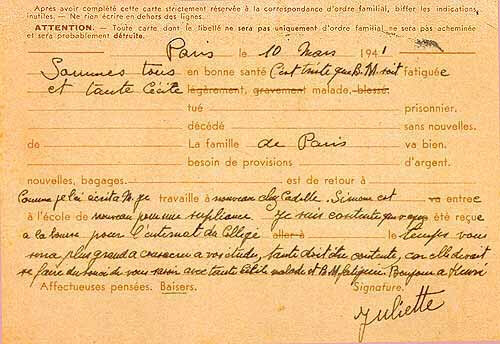 Après avoir complété cette carte strictement réservée à la correspondance d'ordre familial, biffer les indications
inutiles. — Ne rien écrire en dehors des lignes.
ATTENTION. — Toute carte dont le libellé ne sera pas uniquement d'ordre familial ne sera pas acheminée
et sera probablement détruite.
Paris le 10 Mars 1941
Sommes tous en bonne santé C'est triste que B.M. soit fatiguée
et tante Cécile légèrement, gravement malade, blessé.
tué prisonnier.
décédé sans nouvelles.
de La famille de Paris va bien.
besoin de provisions d'argent.
nouvelles, bagages. est de retour à
Comme je l'ai écrit à M. je travaille à nouveau chez Simone est va entrer
à l'école de nouveau pour une supliance. Je suis contente que été reçue
a la bourse pour l'internat du Collège aller à le temps vous
sera plus grand a consacrer a vos étude, tante doit être contente, car elle devait
se faire du souci de vous savoir avec tante Cécile malade et B.M. fatiguée. Bonjour a
Affectueuses pensées. Baisers. Signature.
Juliette